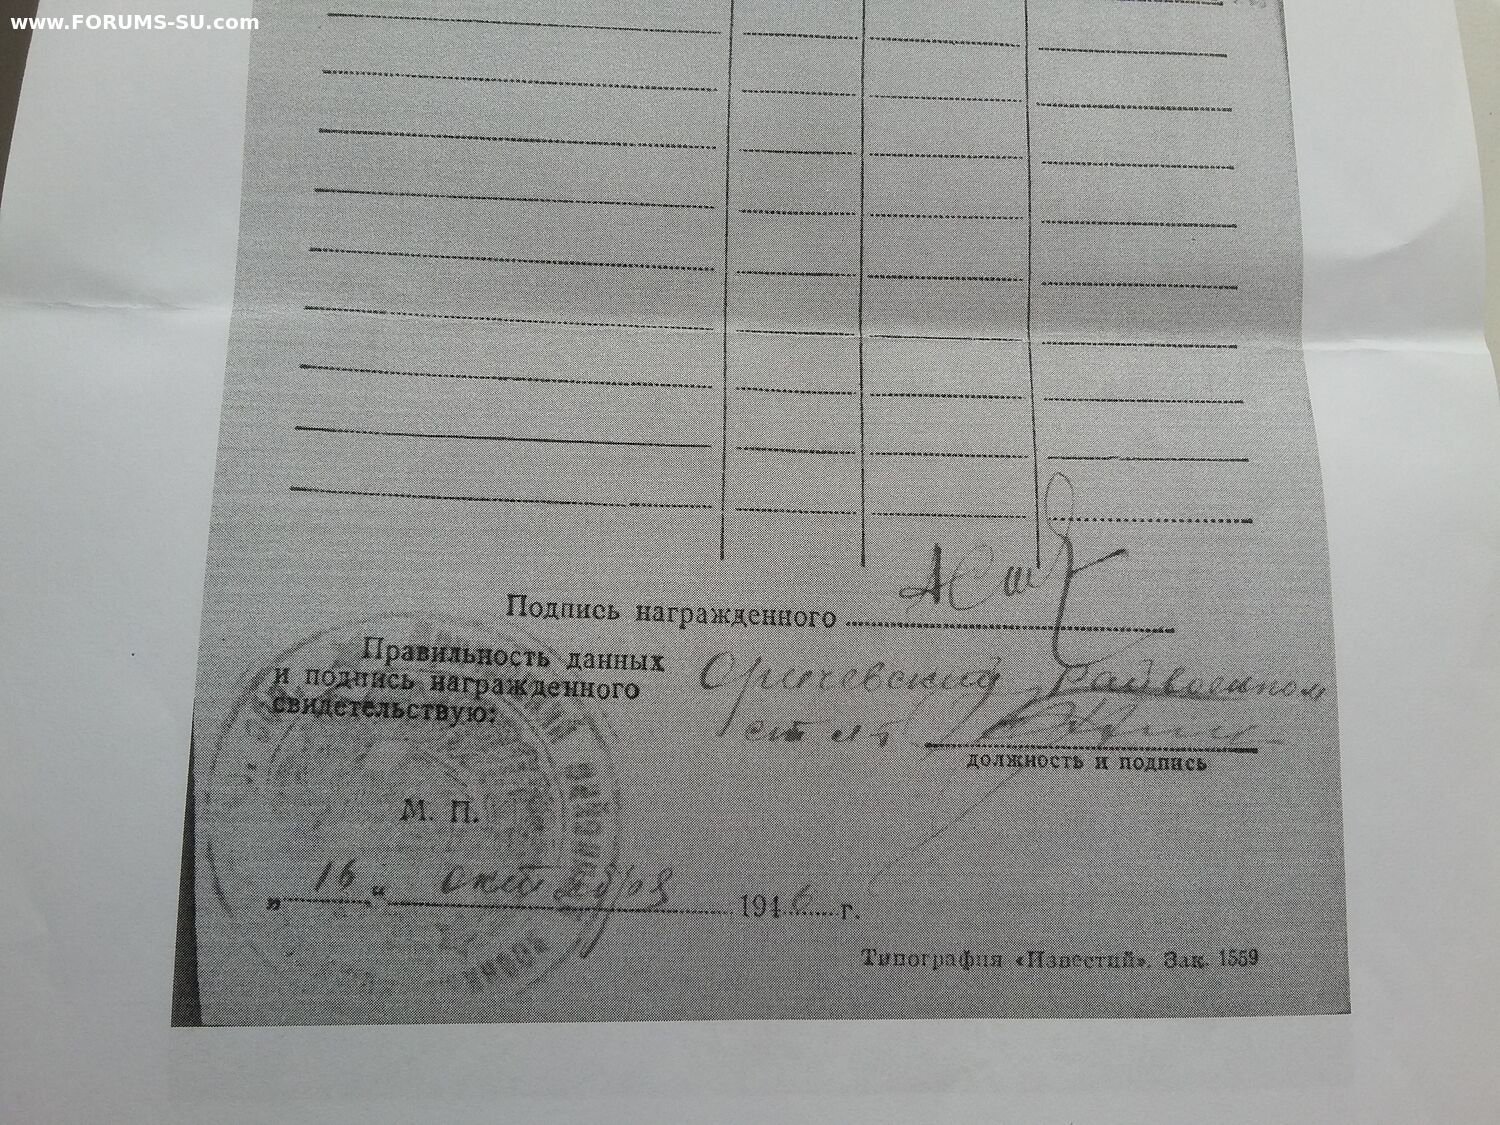 www.FORUMS-SU.com
Подпись награжденного
Правильность данных
и подпись награжденного
свидетельствую:
Оричевский Райвоенком
должность и подпись
М. П.
„ 16 “ октября 1946 г.
Типография «Известий». Зак. 1559